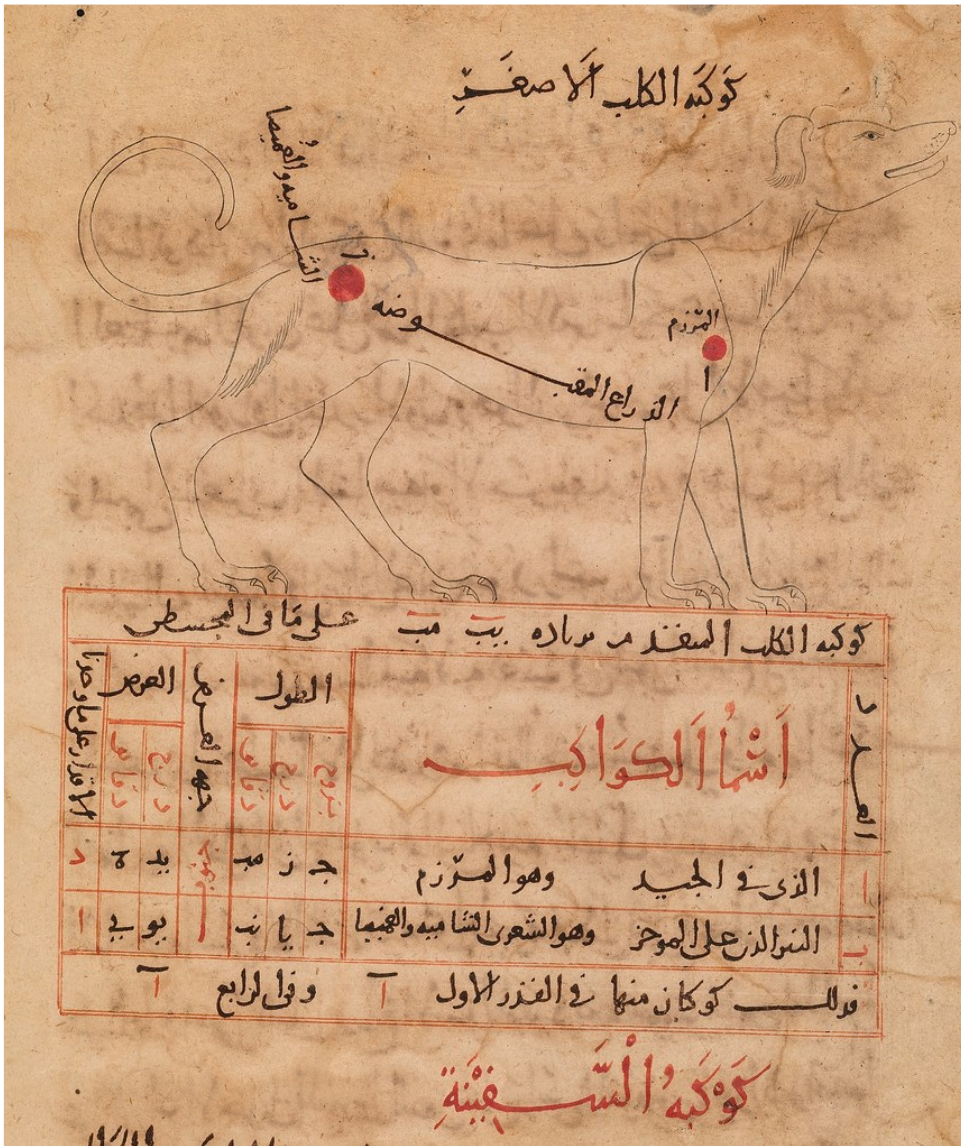 كَوكَبَه الكلب الاصغَر
الشاميه والغُميصا
ز
المرّزم
ا
الذراع المقبوضه
كوكبه الكلب المتقدم بزياده يب مب على ما فى المجسطى
العدد
اَسْمآ اَلكوَاكِبِ
الطول
جهه العرض
العرض
الاقدار على ما وجدنا
بروج
درج
دقايق
درج
دقايق
ا الذى فى الجيد وهو المرّزم ج ز مب جنوب يد ة د
ب النير الذى على الموخر وهو الشعرى الشاميه والغميصا ج يا نب يو يى ا
فذلك كوكبان منها فى القدر الاول آ وفى الرابع آ
كَوْكَبَهُ الْسَّفِيْنَةِ